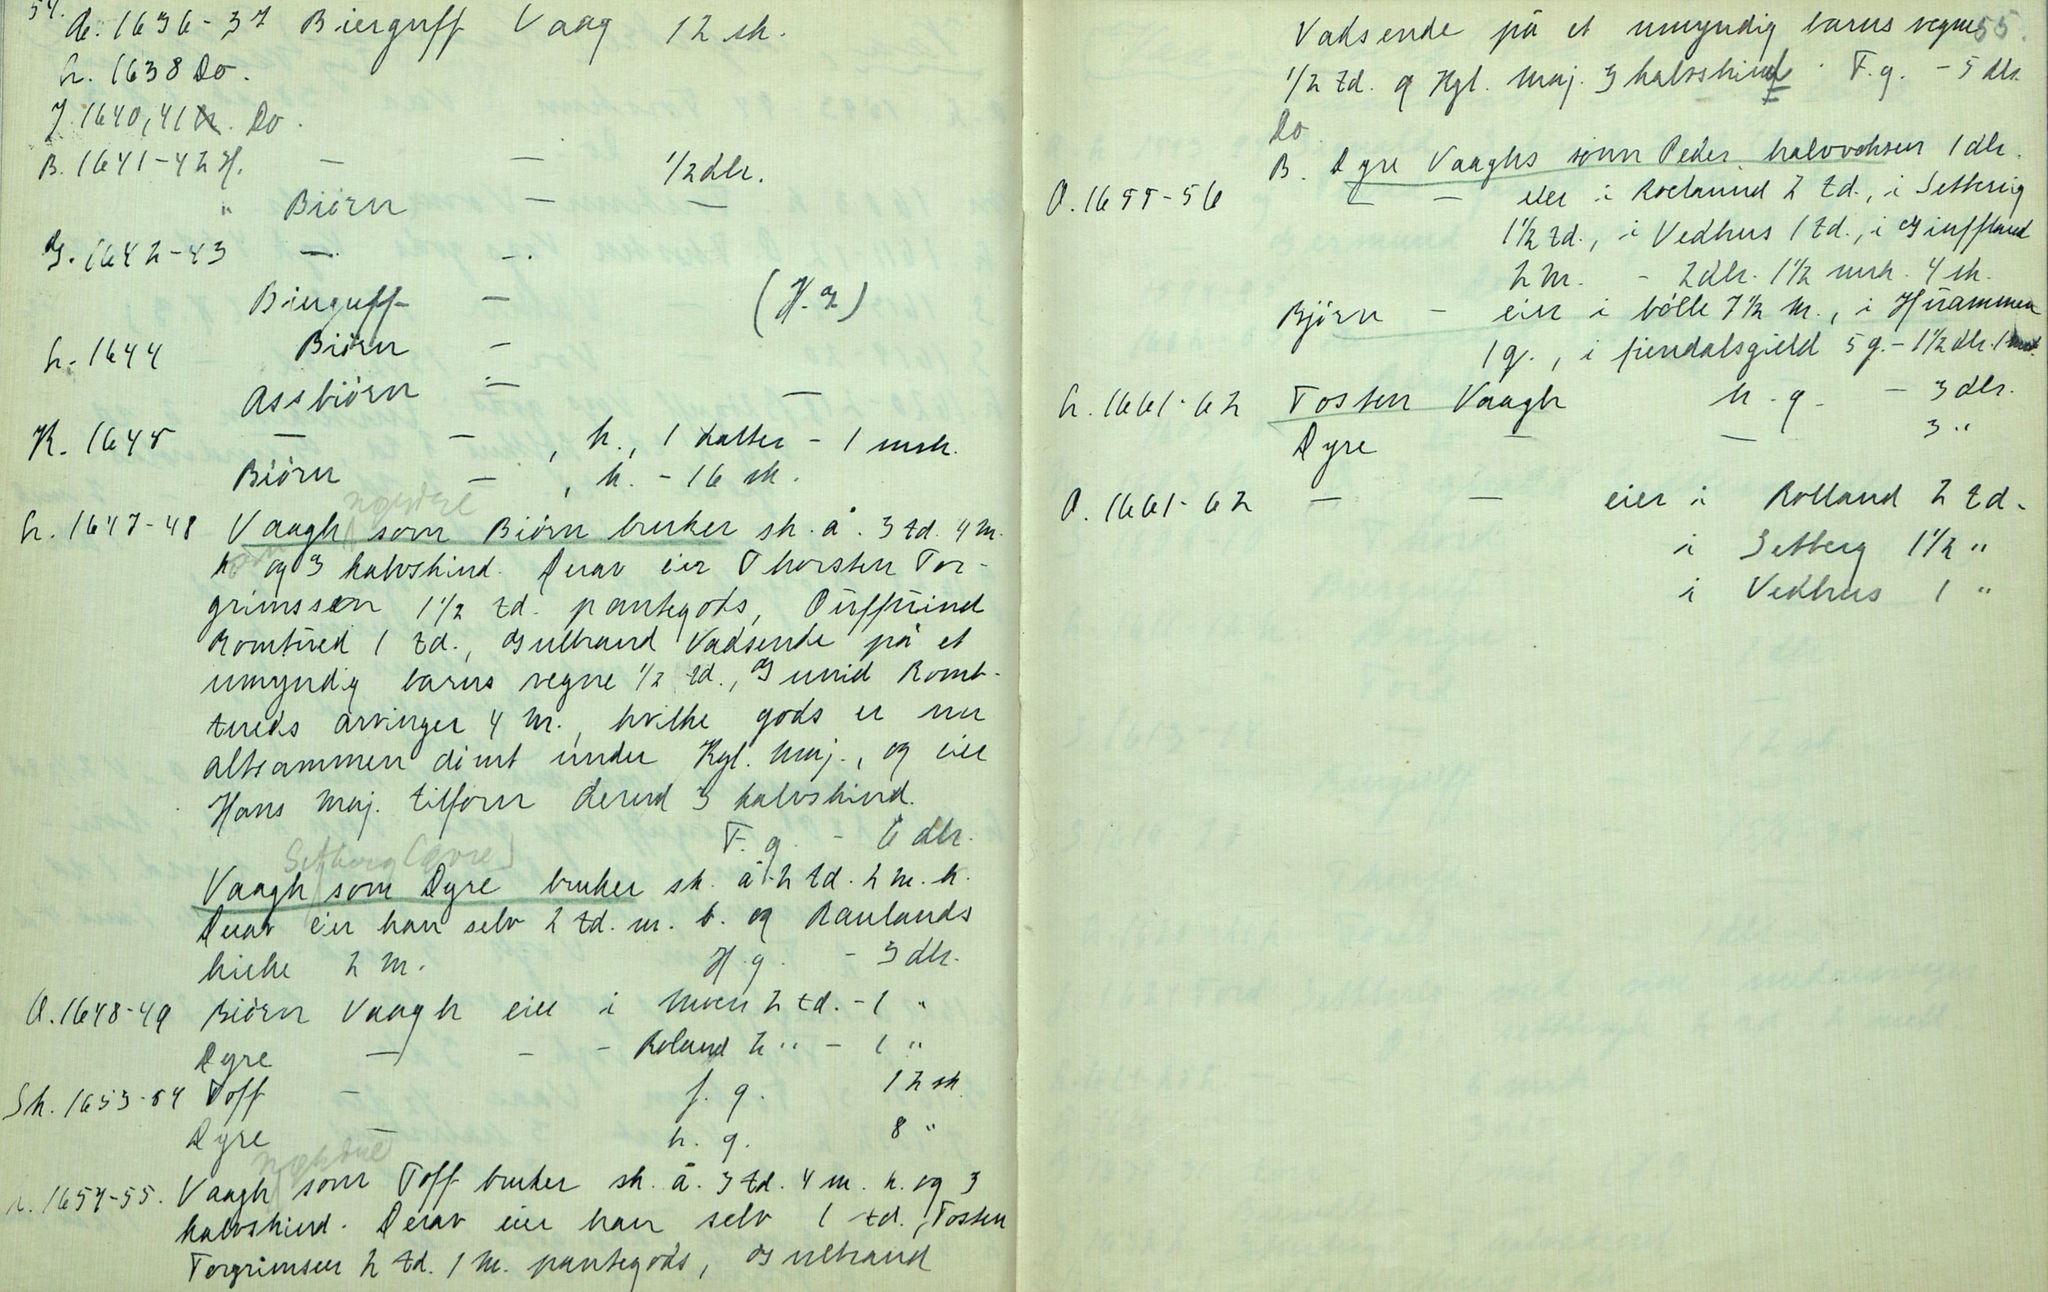 54.
L. 1636-37 Bierguff Vaag 12 sk.
L. 1638 Do.
J. 1640, 41 Do.
B. 1641-42 H. — — 1/2 dlr.
" Biörn — —
G. 1642-43 — —
Bierguff — (H.g)
L. 1644 Biörn —
Assbiörn — —
K. 1645 — — , h., 1 datter - 1 mrk.
Biörn — , h. - 16 sk.
nordre
L. 1647-48 Vaagh som Biörn bruker sk. å. 3 td. 4 m.
k og 3 kalvskind. Derav eier Thorsten Tor-
grimssøn 1 1/2 td. pantegods, Ouffuind
Romtued 1 td., Gulbrand Vadsende på et
umyndig barns vegne 1/2 td., Gunid Romt-
tueds arvinger 4 m., hvilke gods er nu
altsammen dömt under Kgl. Maj., og eier
Hans Maj. tilforn derud 3 kalvskind.
F. g. - 6 dlr.
Setberg (øvre)
Vaagh som Dyre bruker sk. å. 2 td. 2 m. k.
Derav eier han selv 2 td. m. b. og Raulands
kirke 2 m. H.g. - 3 dlr.
O. 1648-49 Biörn Vaagh eier i Moen 2 td. - 1 "
Dyre — - - Roland 2 " - 1 "
Sk. 1653-54 Toff — f. g. 12 sk
Dyre — h. g. 8 "
nordre
L. 1654-55. Vaagh som Toff bruker sk. å. 3 td. 4 m. k. og 3
kalvskind. Derav eier han selv 1 td., Tosten
Torgrimsen 2 td. 1 m. pantegods, Gulbrand
55.
Vadsende på et umyndig barns vegne
1/2 td. og Kgl. Maj. 3 kalvskind. F.g. - 5 dlr.
Do
B. Dyre Vaaghs sönn Peder, halvvoksen 1 dlr.
O. 1655-56 — — eier i Roelannd 2 td., i Setberig
1 1/2 td., i Vedhus 1 td., i Giuffland
2 m. - 2 dlr. 1 1/2 mrk. 4 sk.
Björn - eier i bölle 7 1/2 m., i Huammen
1 g., i fiendalsgield 5 g. - 1 1/2 dlr. 1 mrk.
L. 1661-62 Tosten Vaagh h. g. - 3 dlr.
Dyre — — 3 "
O. 1661-62 — — eier i Rolland 2 td.
i Setberg 1 1/2 "
i Vedhus 1 "